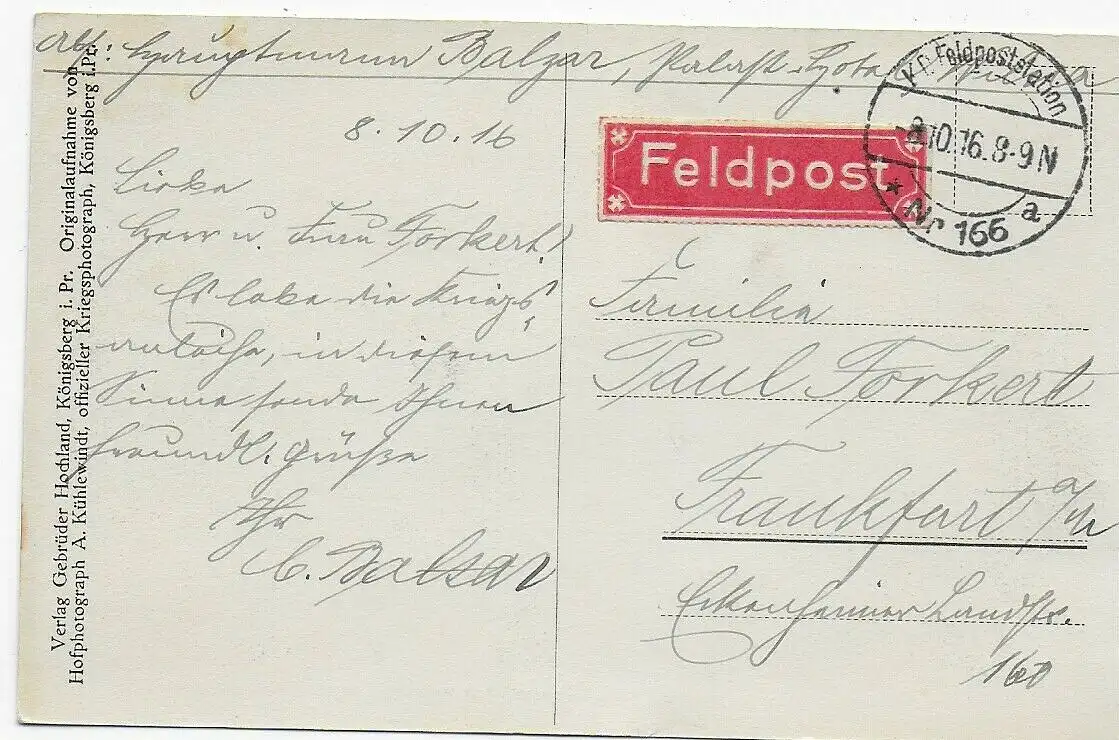 Abs: Hauptmann Balzar, Palast-Hotel Wilna
8.10.16
Liebe
Herr u. Frau Forkert!
Es lebe die Kriegs-
anleihe, in diesem
Sinne sende Ihnen
freundl. Grüße
Ihr
C. Balzar
Feldpost
K.D. Feldpoststation
8.10.16.8-9N
* Nr 166 a
Familie
Paul Forkert
Frankfurt a/M
Eckenheimer Landstr.
160
Verlag Gebrüder Hochland, Königsberg i. Pr. Originalaufnahme von
Hofphotograph A. Kühlewindt, offizieller Kriegsphotograph, Königsberg i. Pr.